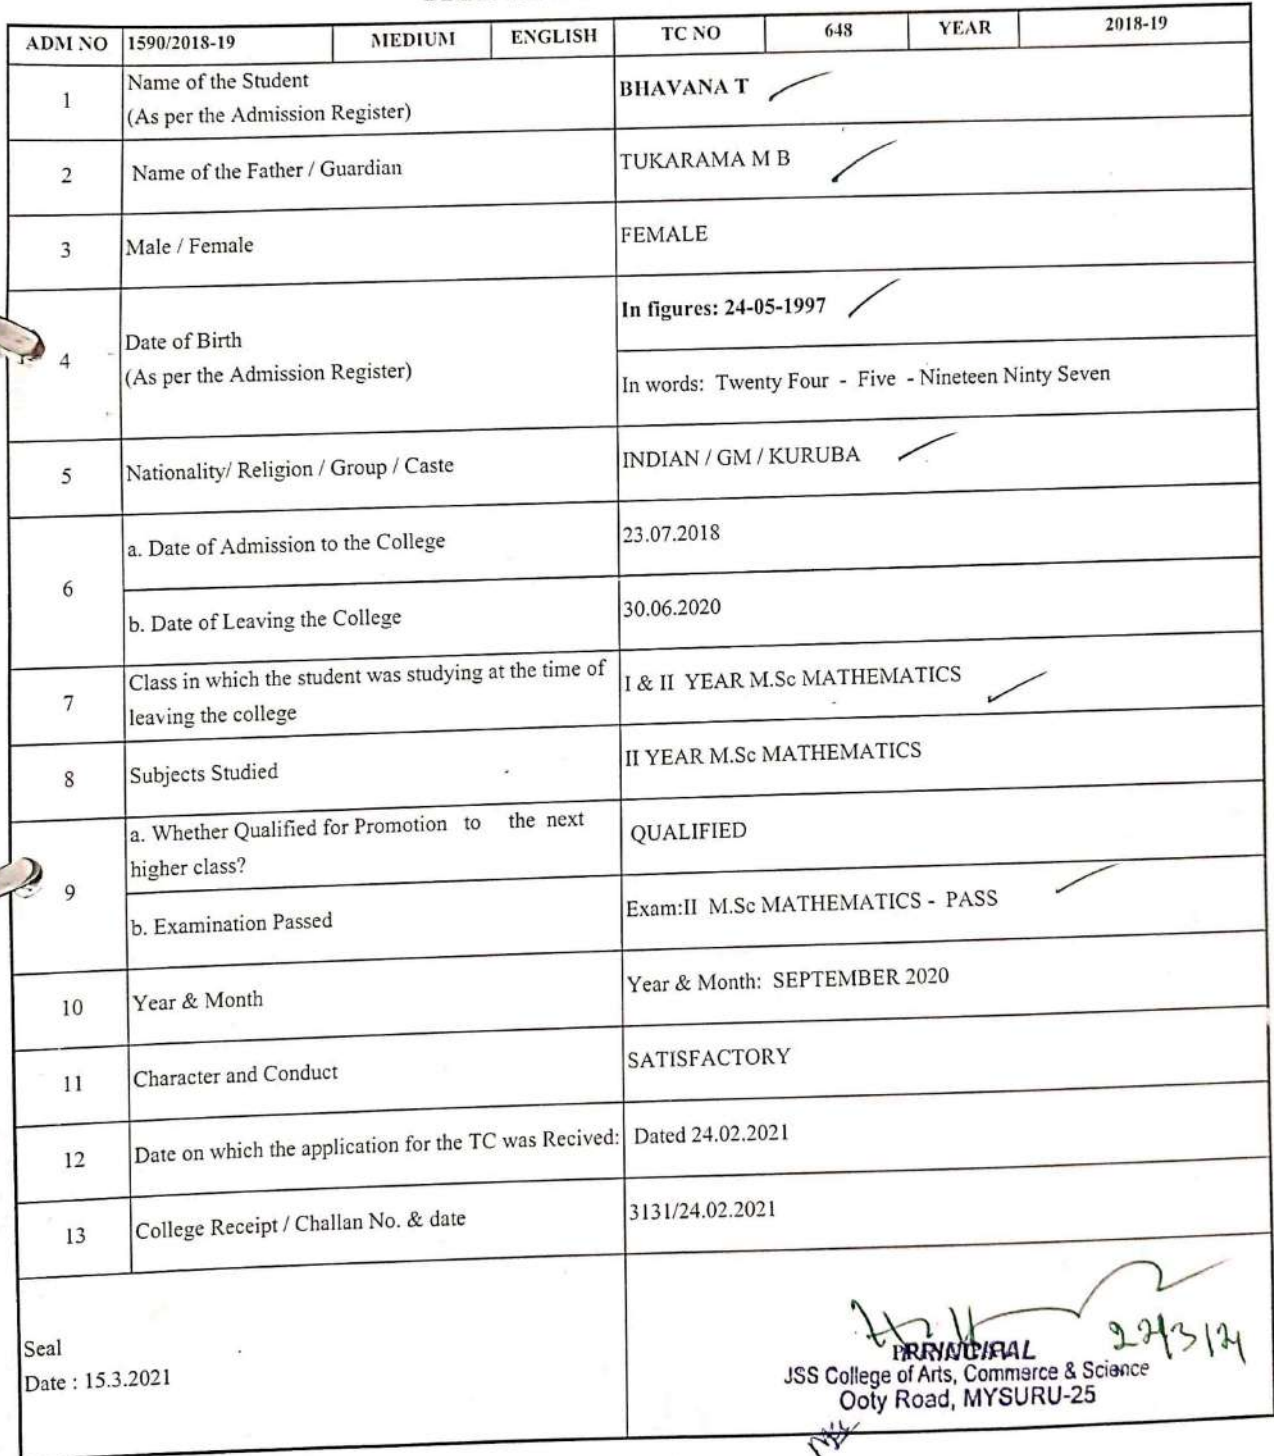 ADM NO 1590/2018-19 MEDIUM ENGLISH TC NO 648 YEAR 2018-19
1 Name of the Student
(As per the Admission Register)
BHAVANA T
2 Name of the Father / Guardian TUKARAMA M B
3 Male / Female FEMALE
4 Date of Birth
(As per the Admission Register)
In figures: 24-05-1997
In words: Twenty Four - Five - Nineteen Ninty Seven
5 Nationality/ Religion / Group / Caste INDIAN / GM / KURUBA
6 a. Date of Admission to the College 23.07.2018
b. Date of Leaving the College 30.06.2020
7 Class in which the student was studying at the time of
leaving the college
I & II YEAR M.Sc MATHEMATICS
8 Subjects Studied II YEAR M.Sc MATHEMATICS
9 a. Whether Qualified for Promotion to the next
higher class?
QUALIFIED
b. Examination Passed Exam:II M.Sc MATHEMATICS - PASS
10 Year & Month Year & Month: SEPTEMBER 2020
11 Character and Conduct SATISFACTORY
12 Date on which the application for the TC was Recived: Dated 24.02.2021
13 College Receipt / Challan No. & date 3131/24.02.2021
Seal
Date : 15.3.2021
PRINCIPAL
JSS College of Arts, Commerce & Science
Ooty Road, MYSURU-25